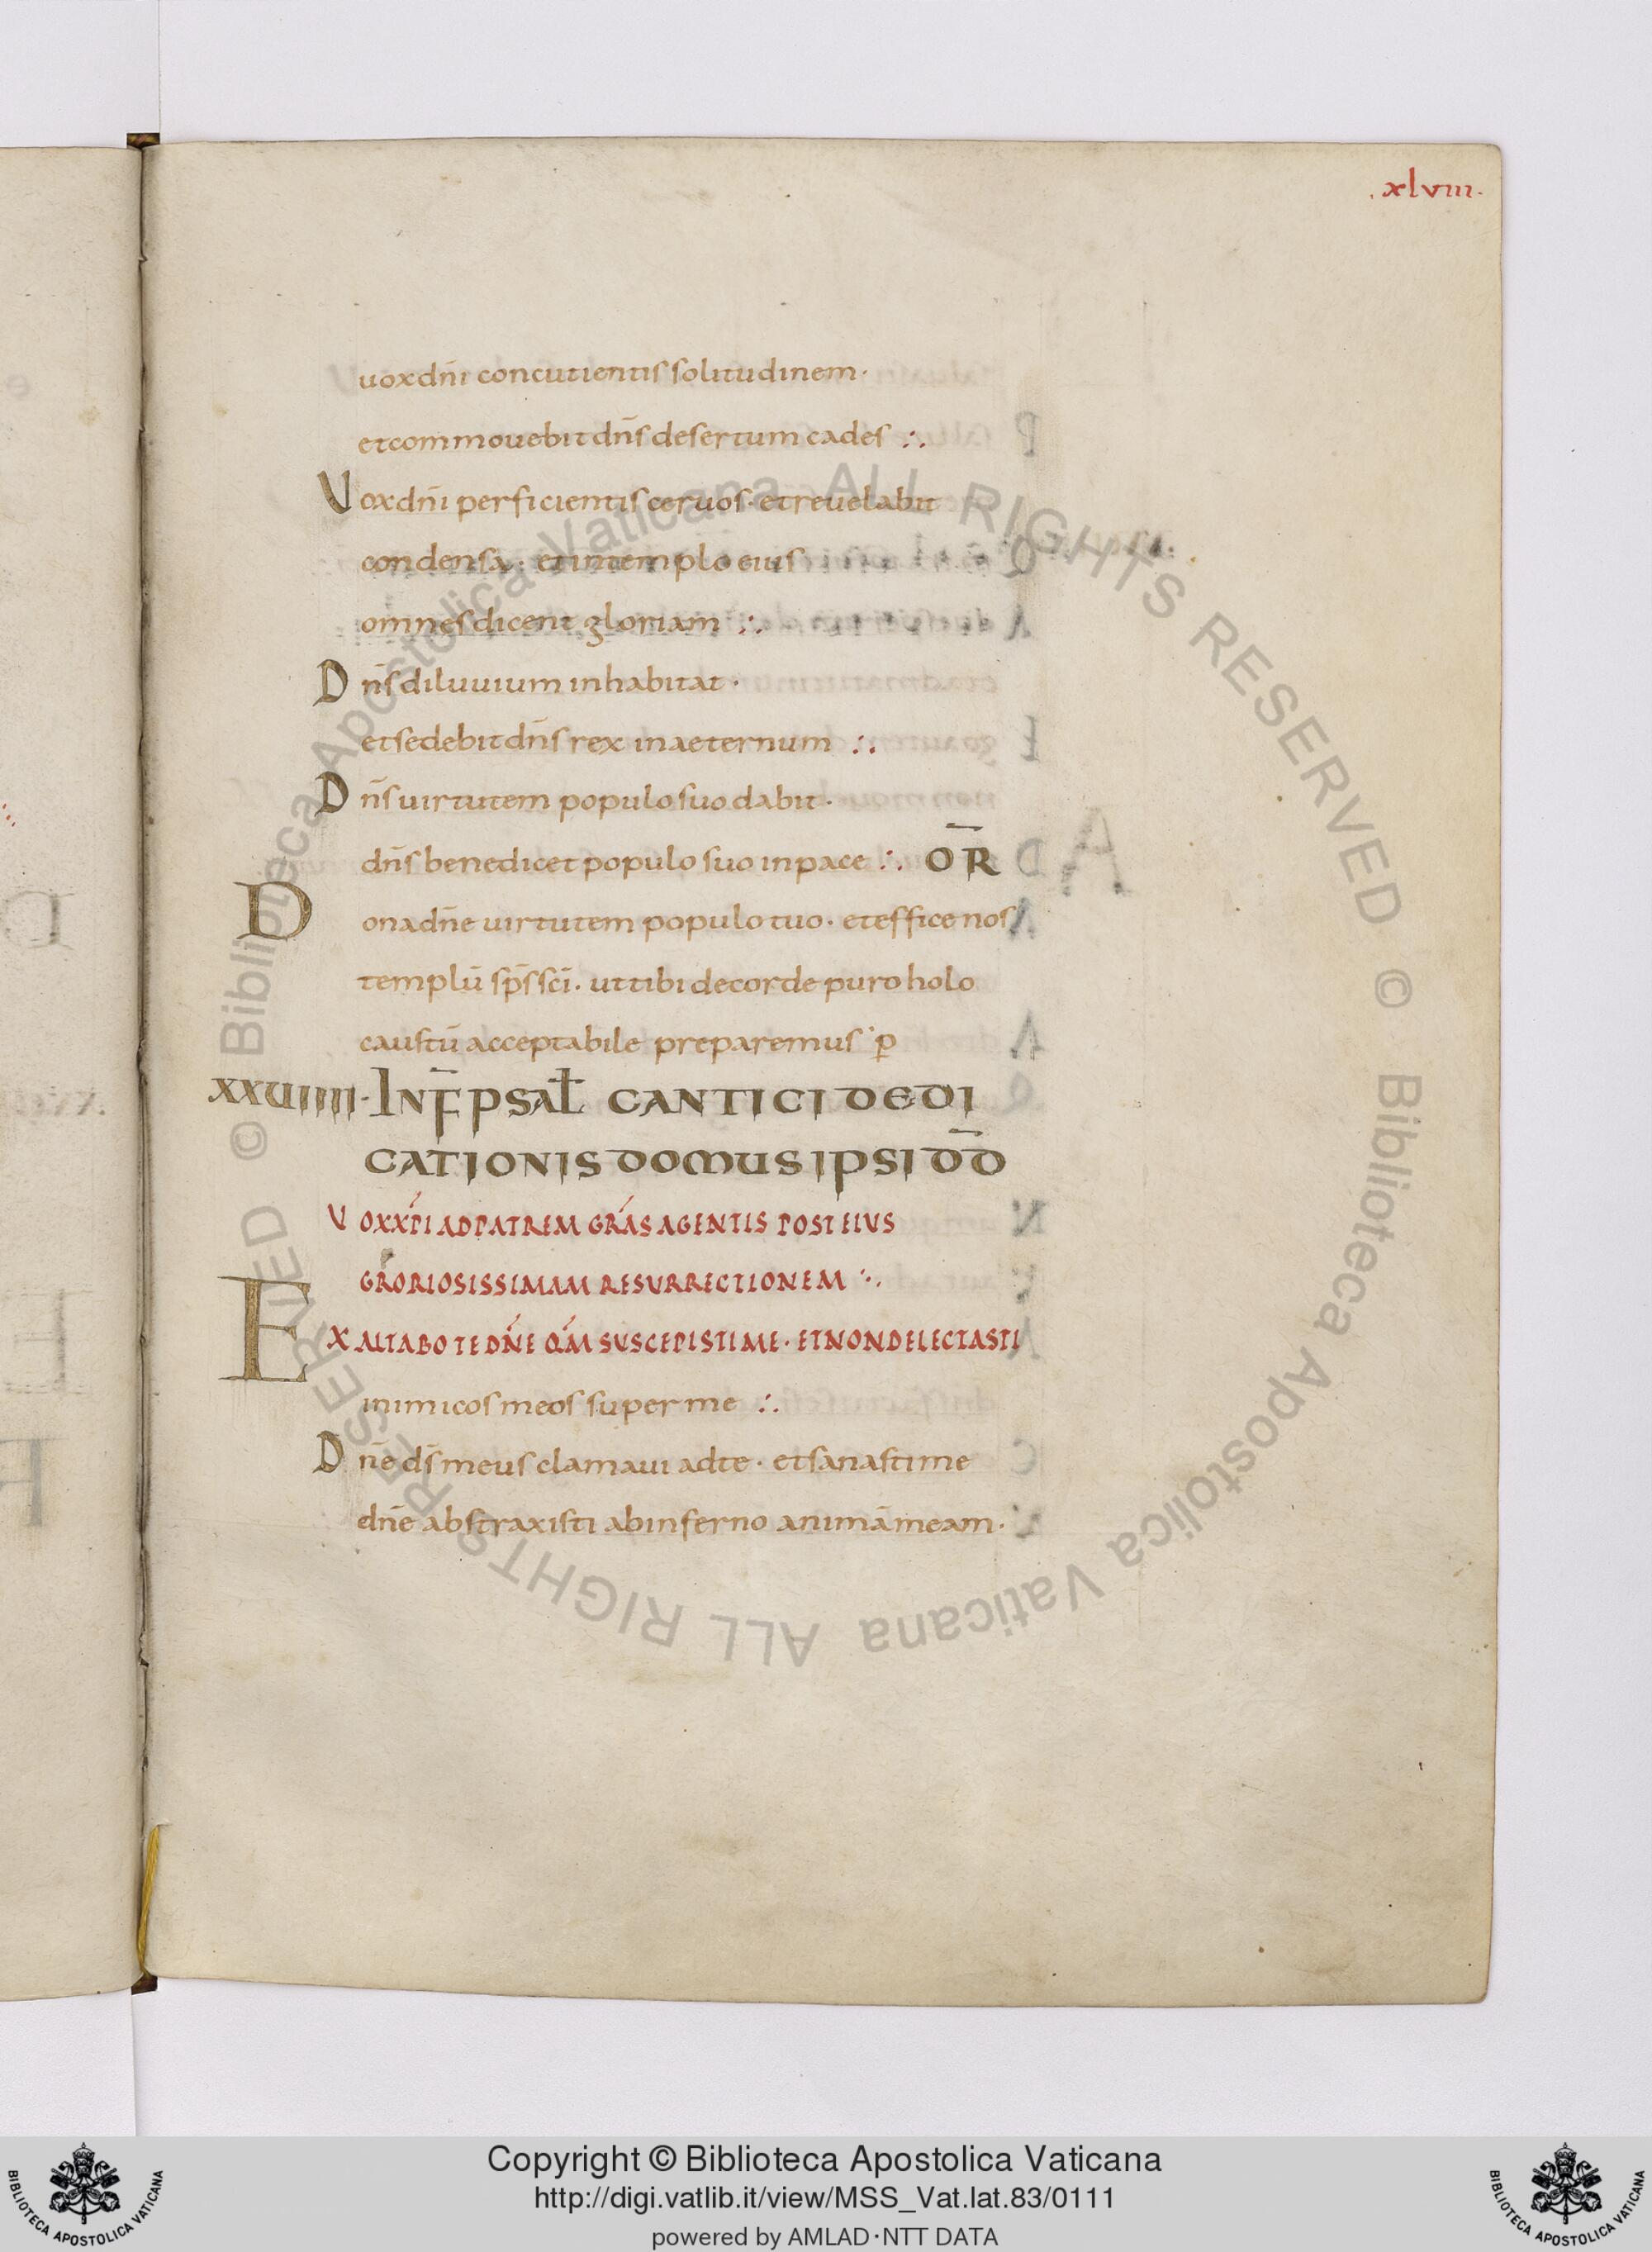 .xlviii.
uox dn̄i concutientis solitudinem·
et commouebit dn̄s desertum cades ∴
Uox dn̄i perficientis ceruos· et reuelabit
condensa· et in templo eius
omnes dicent gloriam ∴
Dn̄s diluuium inhabitat·
et sedebit dn̄s rex in aeternum ∴
Dn̄s uirtutem populo suo dabit·
dn̄s benedicet populo suo in pace ∴ OR̄
Dona dn̄e uirtutem populo tuo· et effice nos
templū sp̄s sc̄i· ut tibi de corde puro holo
caustū acceptabile preparemus p̄
XXUIIII· IN F̄ PSAL̄ CANTICI DEDI
CATIONIS DOMUS IPSI DD̄
VOX XP̄I AD PATREM GRĀS AGENTIS POST EIUS
GRORIOSISSIMAM RESURRECTIONEM ∴
EXALTABO TE DN̄E QM̄ SUSCEPISTI ME· ET NON DELECTASTI
inimicos meos super me ∴
Dn̄e ds̄ meus clamaui ad te· et sanasti me
dn̄e abstraxisti ab inferno animā meam·
© Biblioteca Apostolica Vaticana ALL RIGHTS RESERVED © Biblioteca Apostolica Vaticana ALL RIGHTS RESERVED
Copyright © Biblioteca Apostolica Vaticana
http://digi.vatlib.it/view/MSS_Vat.lat.83/0111
powered by AMLAD·NTT DATA
BIBLIOTECA APOSTOLICA VATICANA
BIBLIOTECA APOSTOLICA VATICANA